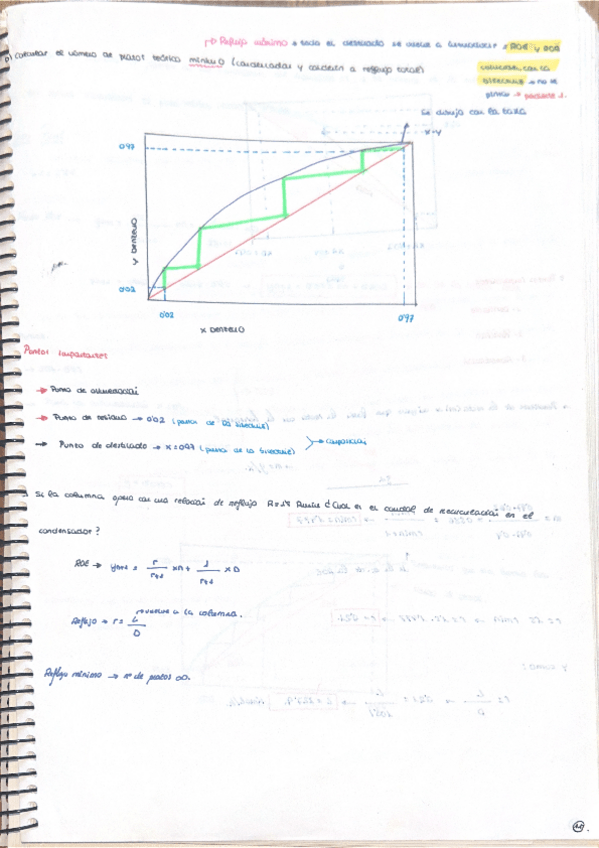 → Reflujo mínimo → todo el destilado se vuelve a
b) Calcular el número de platos teórico mínimo (condensador y calderín a reflujo total)
ROE y ROA
coinciden con la
bisectriz → no le
pinto → pendiente 1.
Se dibuja con la tabla
x=y
0'97
Y BENCENO
0'02
0'02
0'97
X BENCENO
Puntos importantes
→ Punto de alimentación
→ Punto de residuo → 0'02 (punto de la bisectriz)
→ Punto de destilado → x=0'97 (punto de la bisectriz)
Si la columna opera con una relación de reflujo R=1'4 Rmin ¿Cuál es el caudal de recirculación en el
condensador?
ROE → yn+1 = r/r+1 xn + 1/r+1 xD
vuelve a la columna.
Reflujo → r = L/D
Reflujo mínimo → nº de platos ∞.